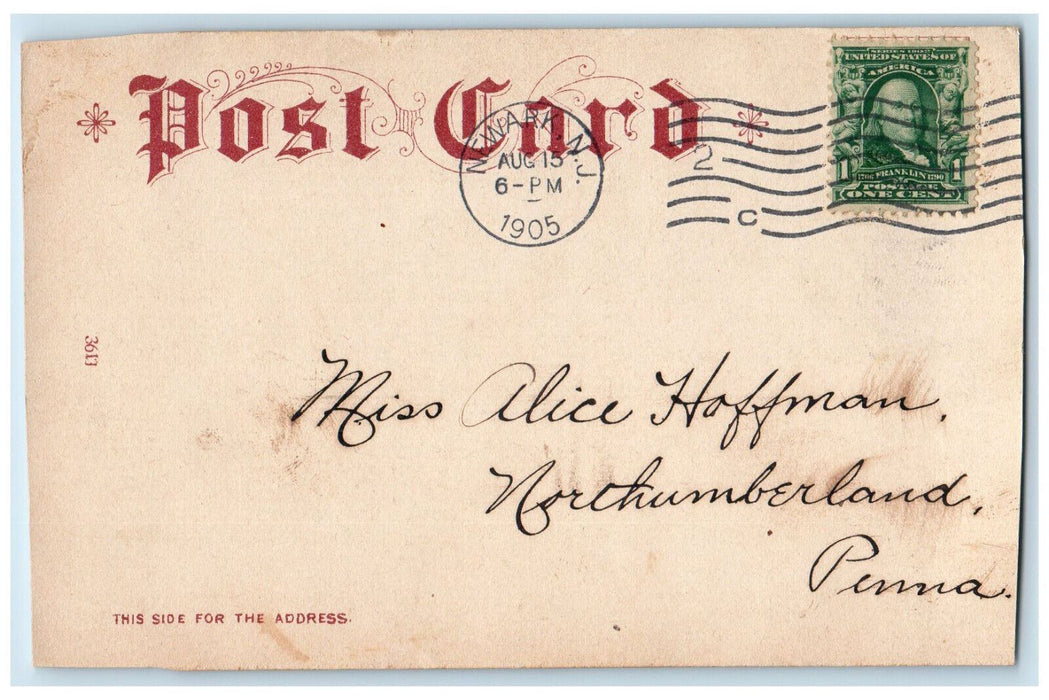 Post Card
NEWARK, N.J.
AUG 15
6-PM
1905
2
C
SERIES 1902
UNITED STATES OF
AMERICA
1 1
1706 FRANKLIN 1790
POSTAGE
ONE CENT
3613
Miss Alice Hoffman,
Northumberland,
Penna.
THIS SIDE FOR THE ADDRESS.